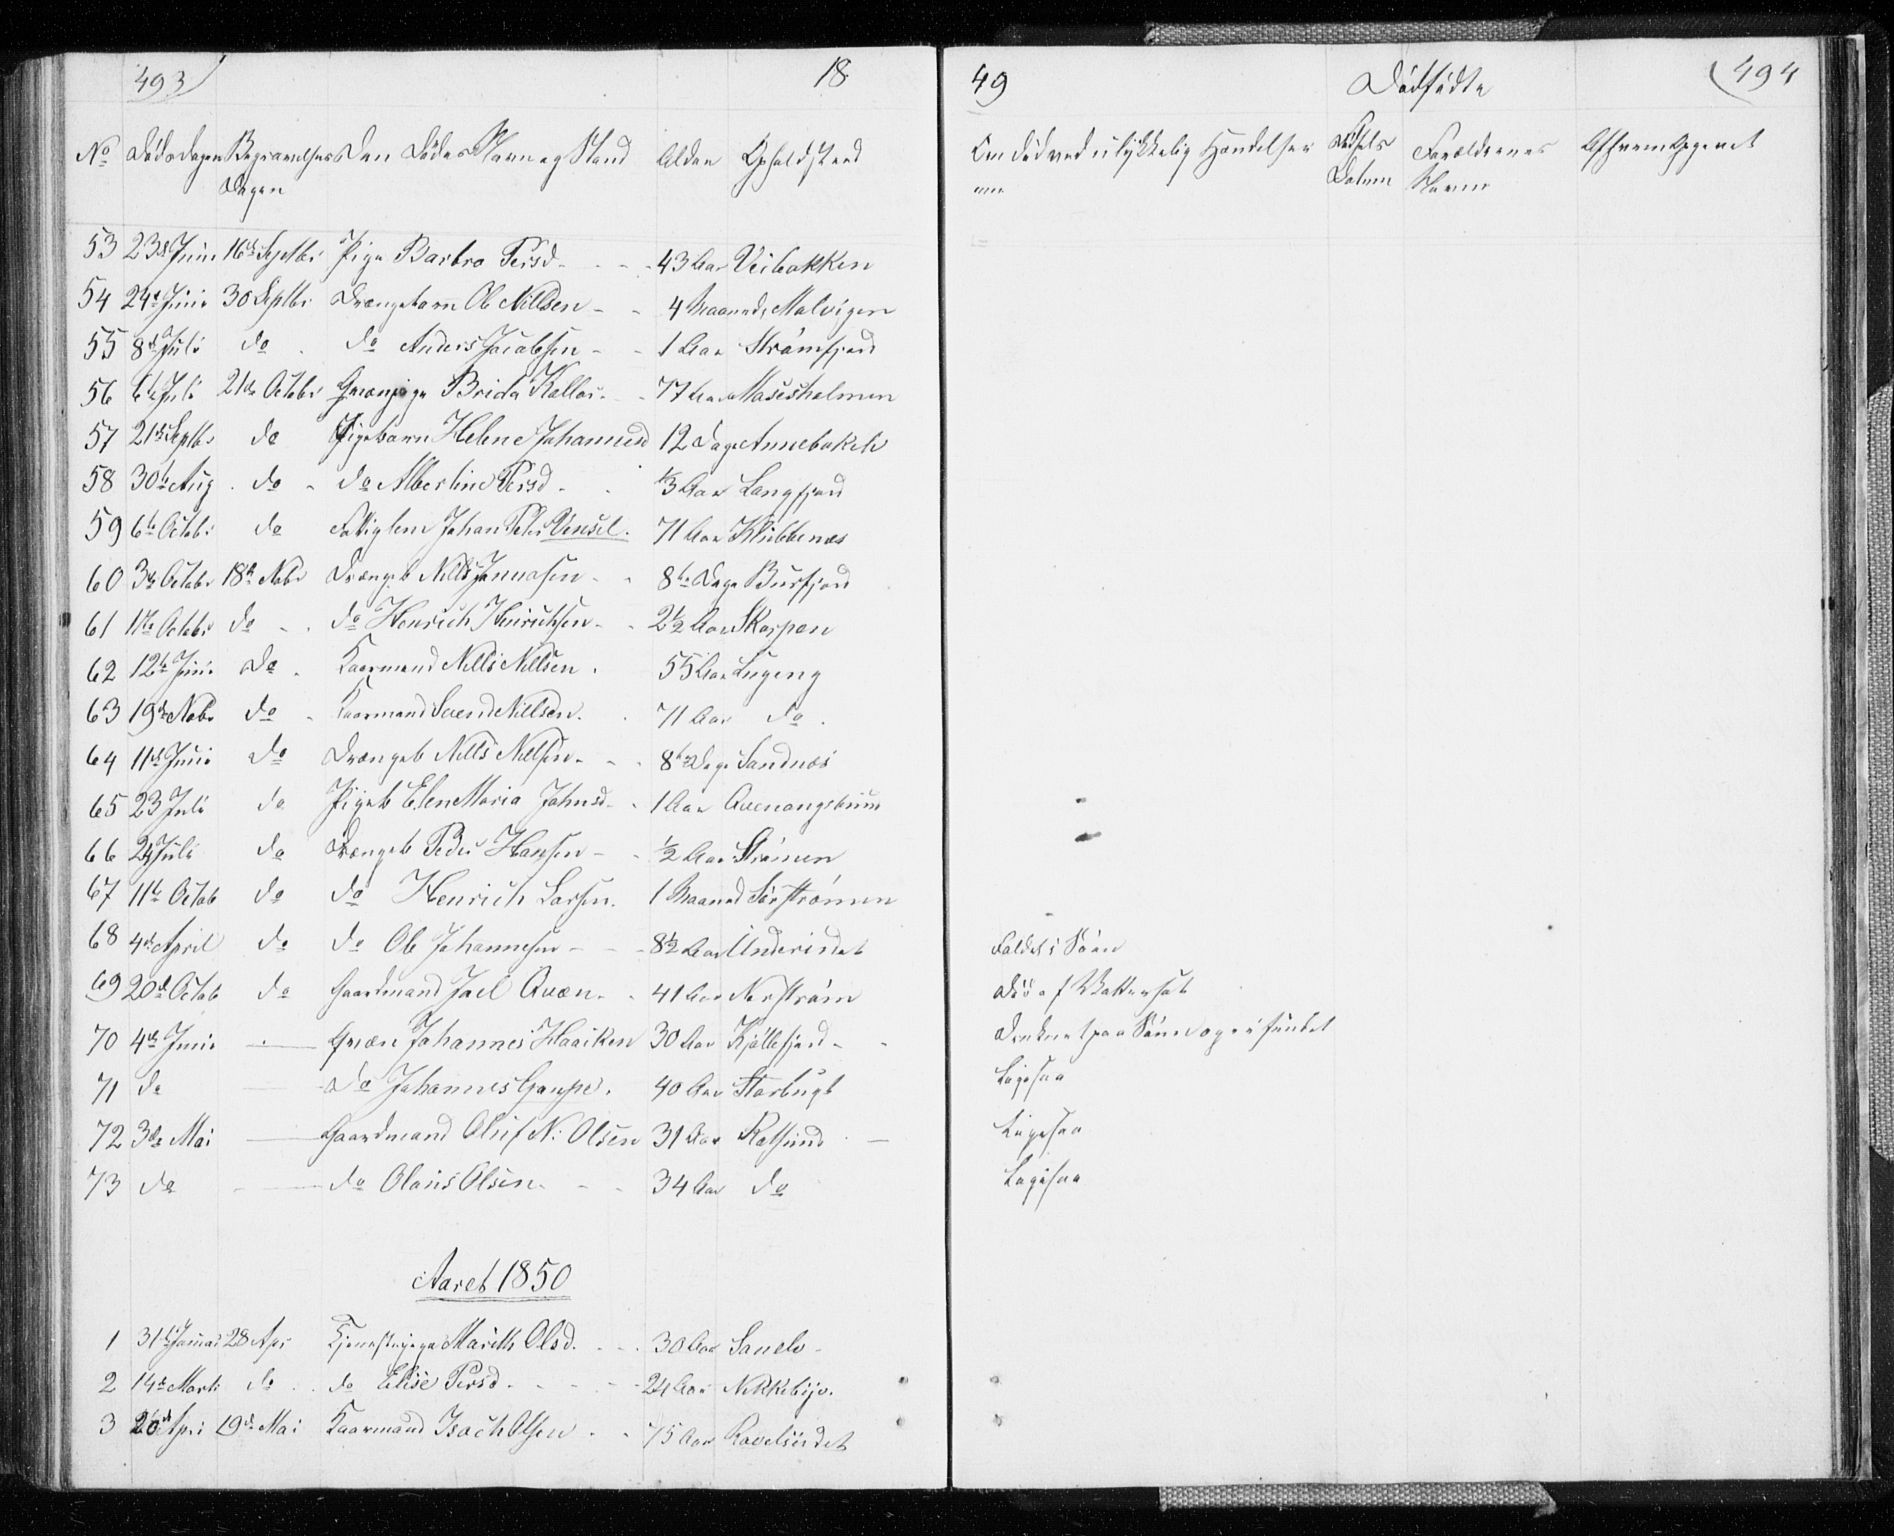 493 18
No Døds Dagen Begravelses Den Dødes Navn og Stand Alder Opholdsted
Dagen
53 23de Juni 16de Septbr Pige Barbro Persd. 43 Aar Veibakken
54 24de Juni 30 Septbr Drengebarn Ole Nillsen 4 Maaneder Malvigen
55 8de Juli do do Anders Jacobsen 1 Aar Strømfjord
56 6te Juli 21de Octobr Qvænpige Brida Kallas 77 Aar Masesholmen
57 21de Septbr do Pigebarn Helene Johannesd 12 Dage Annebakch
58 30te Aug do do Albertine Persd 1/3 Aar Langfjord
59 6te Octobr do Fattiglem Johan Peter Vensel 71 Aar Klubbenæs
60 3de Octobr 18de Nobr Drengeb Nills Jonnasen 8te Dage Burfjord
61 17de Octobr do do Henrich Henrichsen 2 1/2 Aar Skorpen
62 12te Juni do Kaarmand Nills Nillsen 55 Aar Lugeng
63 19de Nobr do Kaarmand Svend Nillsen 71 Aar do
64 11te Juni do Drengeb Nills Nillsen 8te Dage Sandnæs
65 23 Juli do Pigeb Elen Maria Johnsd 1 Aar Qvenangsbunn
66 24 Juli do Drengeb Peder Hansen 1/2 Aar Strømen
67 11te Octob do do Henrich Larsen 1 Maaned Sørstrømen
68 4de April do do Ole Johannesen 8 1/2 Aar Undereidet
69 20de Octob do Gaardmand Joel Qvæn 41 Aar Norstrøm
70 4de Juni Qvæn Johannes Haaiken 30 Aar Kjøllefjord
71 do do Johannes Gaupe 40 Aar Storbugt
72 3de Mai Gaardmand Oluf N: Olsen 31 Aar Rotsund
73 do do Olaus Olsen 34 Aar do
Aaret 1850
1 31te Januar 28 Apr Tjenestepige Marith Olsd. 30 Aar Sandv
2 14de Marti do do Elise Persd 24 Aar Nikkebye.
3 26de Apri 19de Mai Kaarmand Isach Olsen 75 Aar Ravelseidet
49 Dødfødte 494
Om død ved ulykkelig Hændelser Fødsels Forældrenes Af hvem opgivet
Datum Navne
Faldet i Søen
Død af Vattersot
Druknet paa Søen og ei fundet
Ligesaa
Ligesaa
Ligesaa